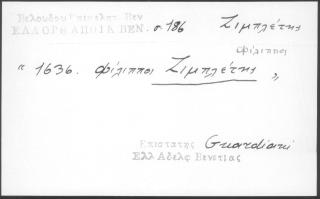 Βελουδου Επιστατ Βεν
ΕΛΛΟΡΘ ΑΠΟΙΚ ΒΕΝ. σ 186 Ζιμπλέτης
Φίλιπποι
" 1636. Φίλιπποι Ζιμπλέτης "
Επιστατης Guardiani
Ελλ Αδελφ Βενετιας